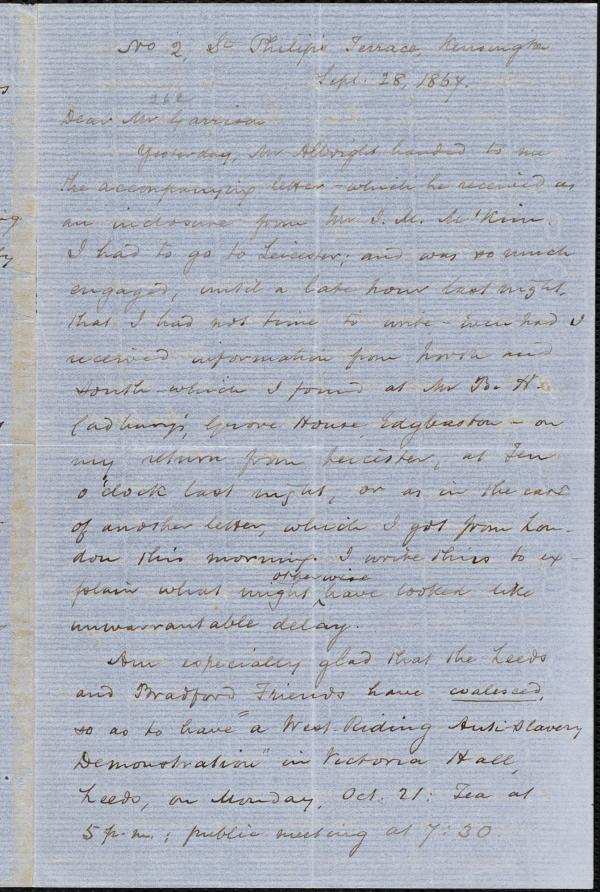 No 2, St Philip's Terrace, Kensington
Sept. 28, 1867.
Dear Mr Garrison
Yesterday, Mr Albright handed to me
the accompanying letter - which he received as
an inclosure from Mr J. M. M'Kim.
I had to go to Leicester; and was so much
engaged, until a late hour last night,
that I had not time to write - even had I
received information from North and
South - which I found at Mr B. H.
Cadbury's, Grove House, Edgbaston - on
my return from Leicester, at Ten
o'clock last night, or as in the case
of another letter, which I got from Lon-
don this morning. I write this to ex-
plain what might otherwise have looked like
unwarrantable delay.
Am especially glad that the Leeds
and Bradford Friends have coalesced,
so as to have "a West-Riding Anti-Slavery
Demonstration" in Victoria Hall,
Leeds, on Monday, Oct. 21: Tea at
5 p.m.; public meeting at 7:30